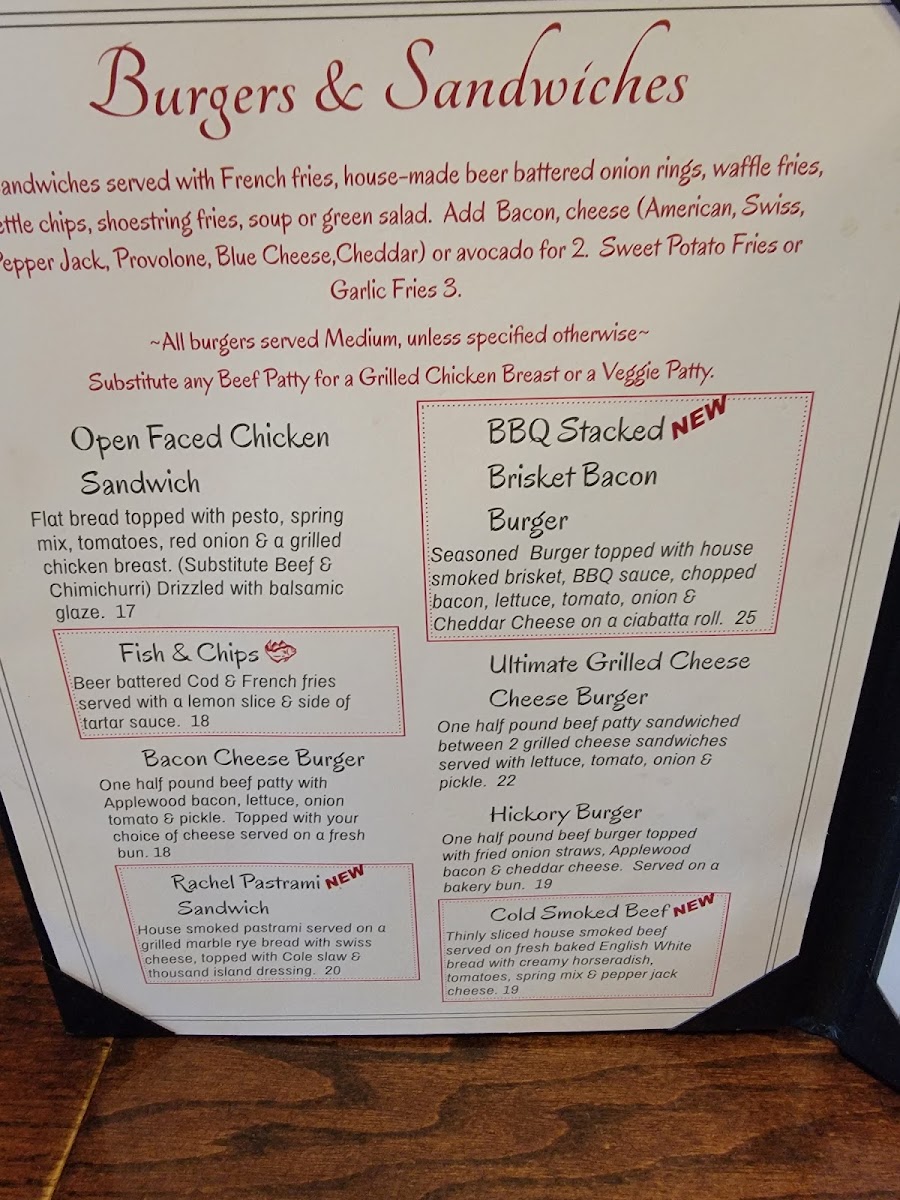 Burgers & Sandwiches
andwiches served with French fries, house-made beer battered onion rings, waffle fries,
ettle chips, shoestring fries, soup or green salad. Add Bacon, cheese (American, Swiss,
Pepper Jack, Provolone, Blue Cheese,Cheddar) or avocado for 2. Sweet Potato Fries or
Garlic Fries 3.
~All burgers served Medium, unless specified otherwise~
Substitute any Beef Patty for a Grilled Chicken Breast or a Veggie Patty.
Open Faced Chicken
Sandwich
Flat bread topped with pesto, spring
mix, tomatoes, red onion & a grilled
chicken breast. (Substitute Beef &
Chimichurri) Drizzled with balsamic
glaze. 17
Fish & Chips
Beer battered Cod & French fries
served with a lemon slice & side of
tartar sauce. 18
Bacon Cheese Burger
One half pound beef patty with
Applewood bacon, lettuce, onion
tomato & pickle. Topped with your
choice of cheese served on a fresh
bun. 18
Rachel Pastrami NEW
Sandwich
House smoked pastrami served on a
grilled marble rye bread with swiss
cheese, topped with Cole slaw &
thousand island dressing. 20
BBQ Stacked NEW
Brisket Bacon
Burger
Seasoned Burger topped with house
smoked brisket, BBQ sauce, chopped
bacon, lettuce, tomato, onion &
Cheddar Cheese on a ciabatta roll. 25
Ultimate Grilled Cheese
Cheese Burger
One half pound beef patty sandwiched
between 2 grilled cheese sandwiches
served with lettuce, tomato, onion &
pickle. 22
Hickory Burger
One half pound beef burger topped
with fried onion straws, Applewood
bacon & cheddar cheese. Served on a
bakery bun. 19
Cold Smoked Beef NEW
Thinly sliced house smoked beef
served on fresh baked English White
bread with creamy horseradish,
tomatoes, spring mix & pepper jack
cheese. 19